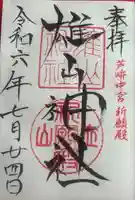 奉拝
芦峅中宮祈願殿
雄山神社
令和六年七月廿四日